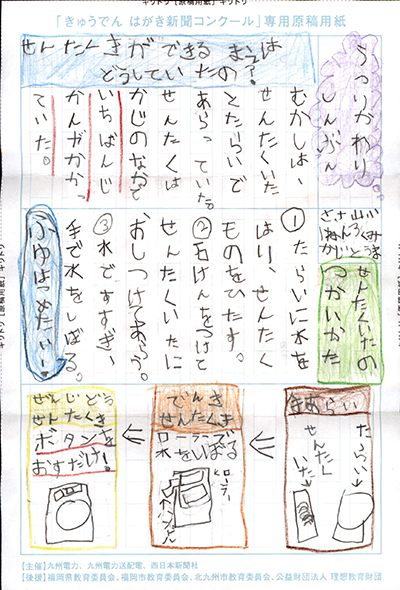 キリトリ【原稿用紙】キリトリ
「きゅうでん はがき新聞コンクール」専用原稿用紙
うつりがわり
しんぶん
せんたくきができるまえは
どうしていたの?
むかしは、
せんたくいた
とたらいで
あらっていた。
せんたくは
かじのなかで
いちばんじ
かんがかかっ
ていた。
せんたくいたの
つかいかた
①たらいに水を
はり、せんたく
ものをひたす。
②石けんをつけて
せんたくいたに
おしつけてあらう。
③水ですすぎ、
手で水をしばる。
ふゆはつめたい!
手あらい
たらい→
せんたく
いた→
でんき
せんたくき
ローラーで
水をしぼる
ローラー
ハンドル
ぜんじどう
せんたくき
ボタンを
おすだけ!
【主催】九州電力、九州電力送配電、西日本新聞社
【後援】福岡県教育委員会、福岡市教育委員会、北九州市教育委員会、公益財団法人 理想教育財団